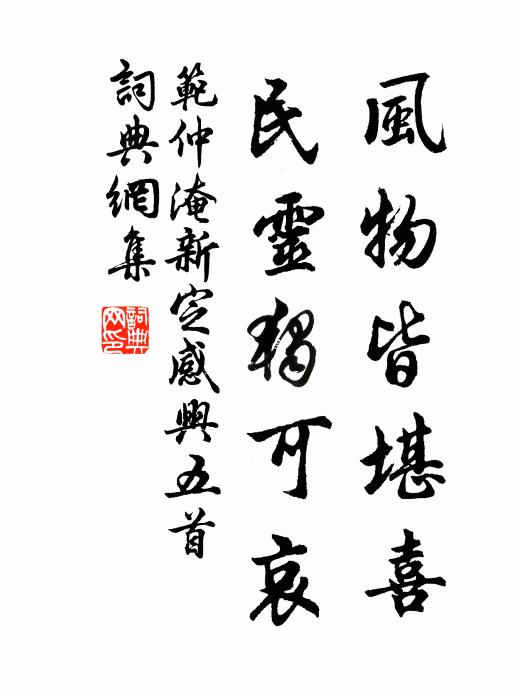 風物皆堪喜
民靈獨可哀
範仲淹新定感興五首
詞典網集
詞典
网印